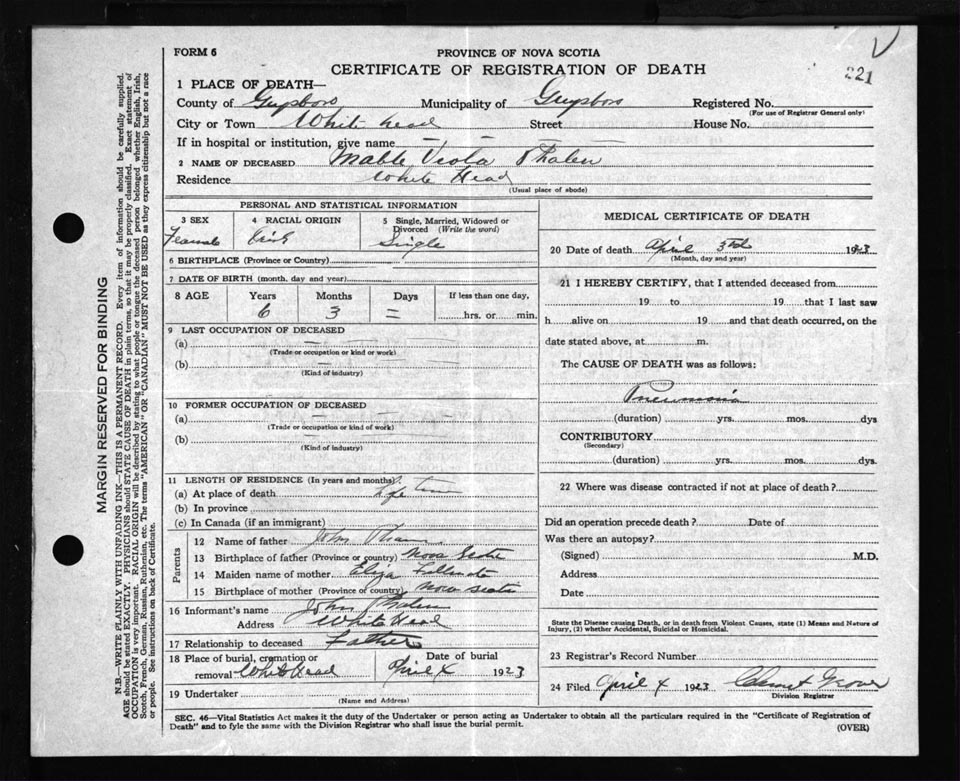 FORM 6
PROVINCE OF NOVA SCOTIA
CERTIFICATE OF REGISTRATION OF DEATH
221
1 PLACE OF DEATH—
County of Guysboro Municipality of Guysboro Registered No.
(For use of Registrar General only)
City or Town White head Street House No.
If in hospital or institution, give name — —
2 NAME OF DECEASED Mable Viola Phalen
Residence White Head
(Usual place of abode)
MARGIN RESERVED FOR BINDING
N.B.—WRITE PLAINLY WITH UNFADING INK—THIS IS A PERMANENT RECORD. Every item of information should be carefully supplied.
AGE should be stated EXACTLY. PHYSICIANS should STATE CAUSE OF DEATH in plain terms, so that it may be properly classified. Exact statement of
OCCUPATION is very important. RACIAL ORIGIN will be described by stating to what people or tongue the deceased person belonged whether English, Irish,
Scotch, French, German, Russian, Ruthenian, etc. The terms "AMERICAN" OR "CANADIAN" MUST NOT BE USED as they express citizenship but not a race
or people. See instructions on back of Certificate.
PERSONAL AND STATISTICAL INFORMATION
3 SEX 4 RACIAL ORIGIN 5 Single, Married, Widowed or
Divorced (Write the word)
Female Irish Single
6 BIRTHPLACE (Province or Country)
7 DATE OF BIRTH (month, day and year)
8 AGE Years Months Days If less than one day,
6 3 = hrs. or min.
9 LAST OCCUPATION OF DECEASED
(a) —
(Trade or occupation or kind or work)
(b) —
(Kind of industry)
10 FORMER OCCUPATION OF DECEASED
(a) —
(Trade or occupation or kind of work)
(b) —
(Kind of industry)
11 LENGTH OF RESIDENCE (In years and months)
(a) At place of death life time
(b) In province
(c) In Canada (if an immigrant)
Parents
12 Name of father John
13 Birthplace of father (Province or country) Nova Scotia
14 Maiden name of mother Eliza
15 Birthplace of mother (Province or country) Nova Scotia
16 Informant's name John Phalen
Address White Head
17 Relationship to deceased Father
18 Place of burial, cremation or Date of burial
removal White Head April 4 1923
19 Undertaker
(Name and Address)
MEDICAL CERTIFICATE OF DEATH
20 Date of death April 3rd 1923
(Month, day and year)
21 I HEREBY CERTIFY, that I attended deceased from
19 to 19 that I last saw
h alive on 19 and that death occurred, on the
date stated above, at m.
The CAUSE OF DEATH was as follows:
Pneumonia
(duration) yrs. mos. dys
CONTRIBUTORY
(Secondary)
(duration) yrs. mos. dys.
22 Where was disease contracted if not at place of death?
Did an operation precede death? Date of
Was there an autopsy?
(Signed) M.D.
Address
Date
State the Disease causing Death, or in death from Violent Causes, state (1) Means and Nature of
Injury, (2) whether Accidental, Suicidal or Homicidal.
23 Registrar's Record Number
24 Filed April 4 1923
Division Registrar
SEC. 46—Vital Statistics Act makes it the duty of the Undertaker or person acting as Undertaker to obtain all the particulars required in the "Certificate of Registration of
Death" and to fyle the same with the Division Registrar who shall issue the burial permit.
(OVER)